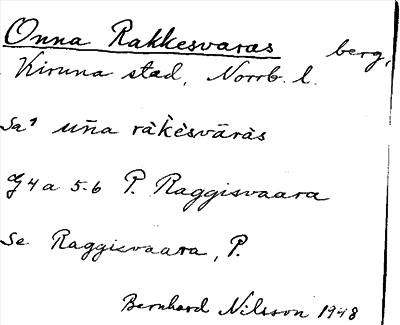 Onna Rakkesvaras berg,
Kiruna stad, Norrb. l.
Sa¹ un̄a ràk̀ès̀vāràs
G4a 5-6 P. Raggisvaara
Se Raggisvaara, P.
Bernhard Nilsson 1948